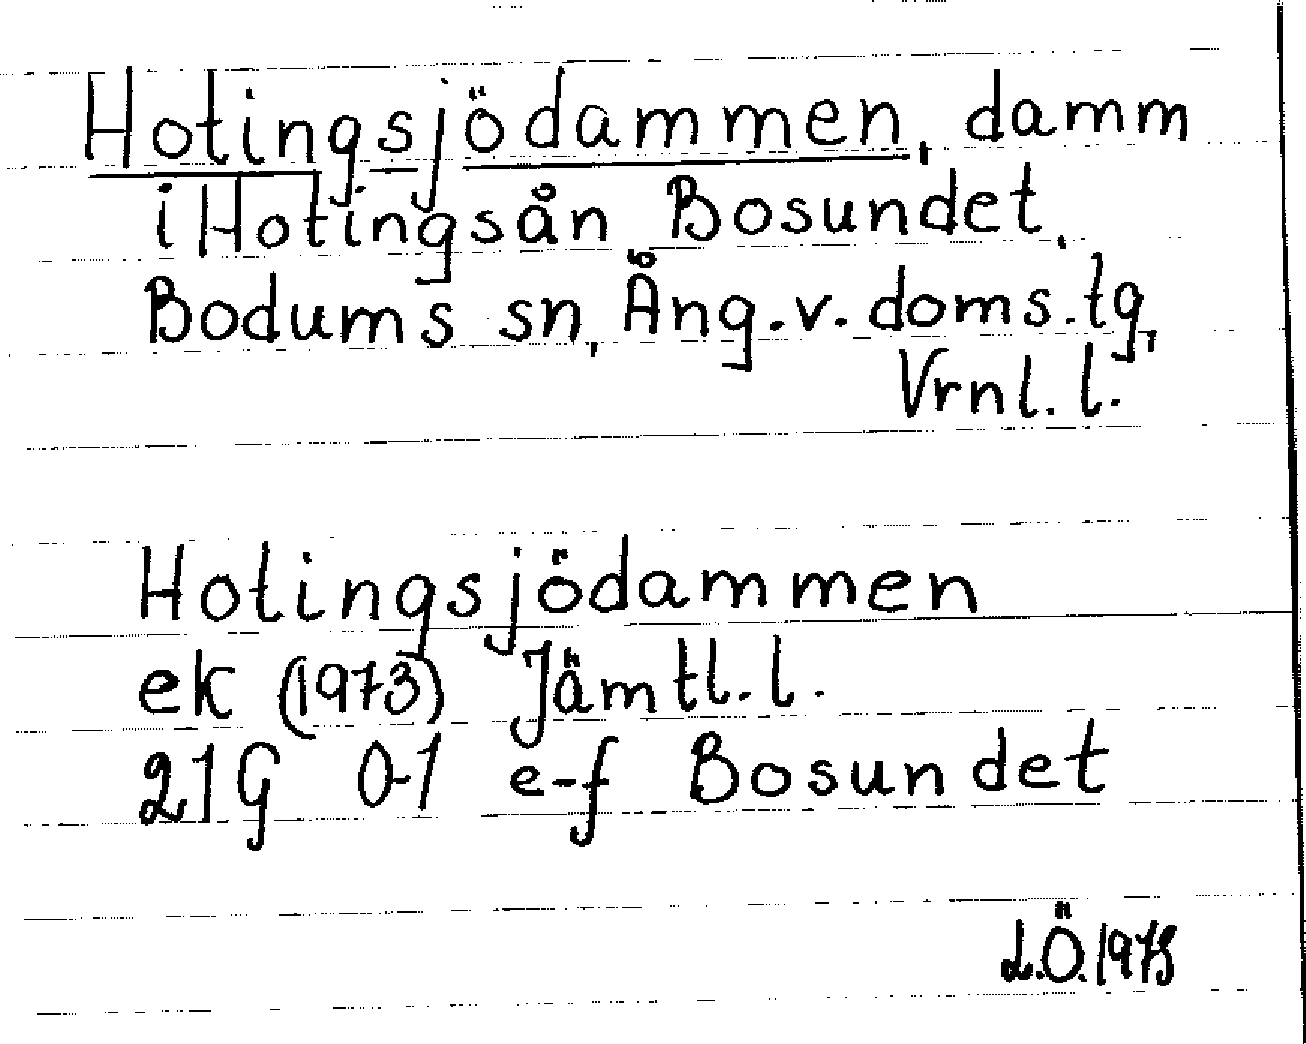 Hotingsjödammen, damm
i Hotingsån Bosundet,
Bodums sn, Ång.v. doms.tg,
Vrnl. l.
Hotingsjödammen
ek (1973) Jämtl. l.
21G 0-1 e-f Bosundet
L.Ö.